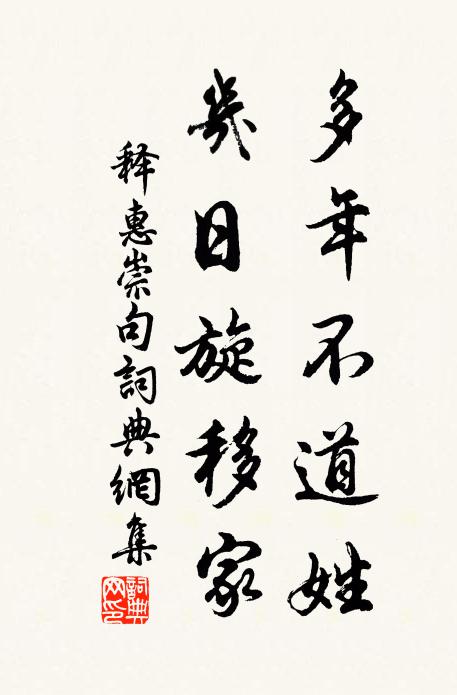 多年不道姓
幾日旋移家
释惠崇句詞典網集
詞典网印